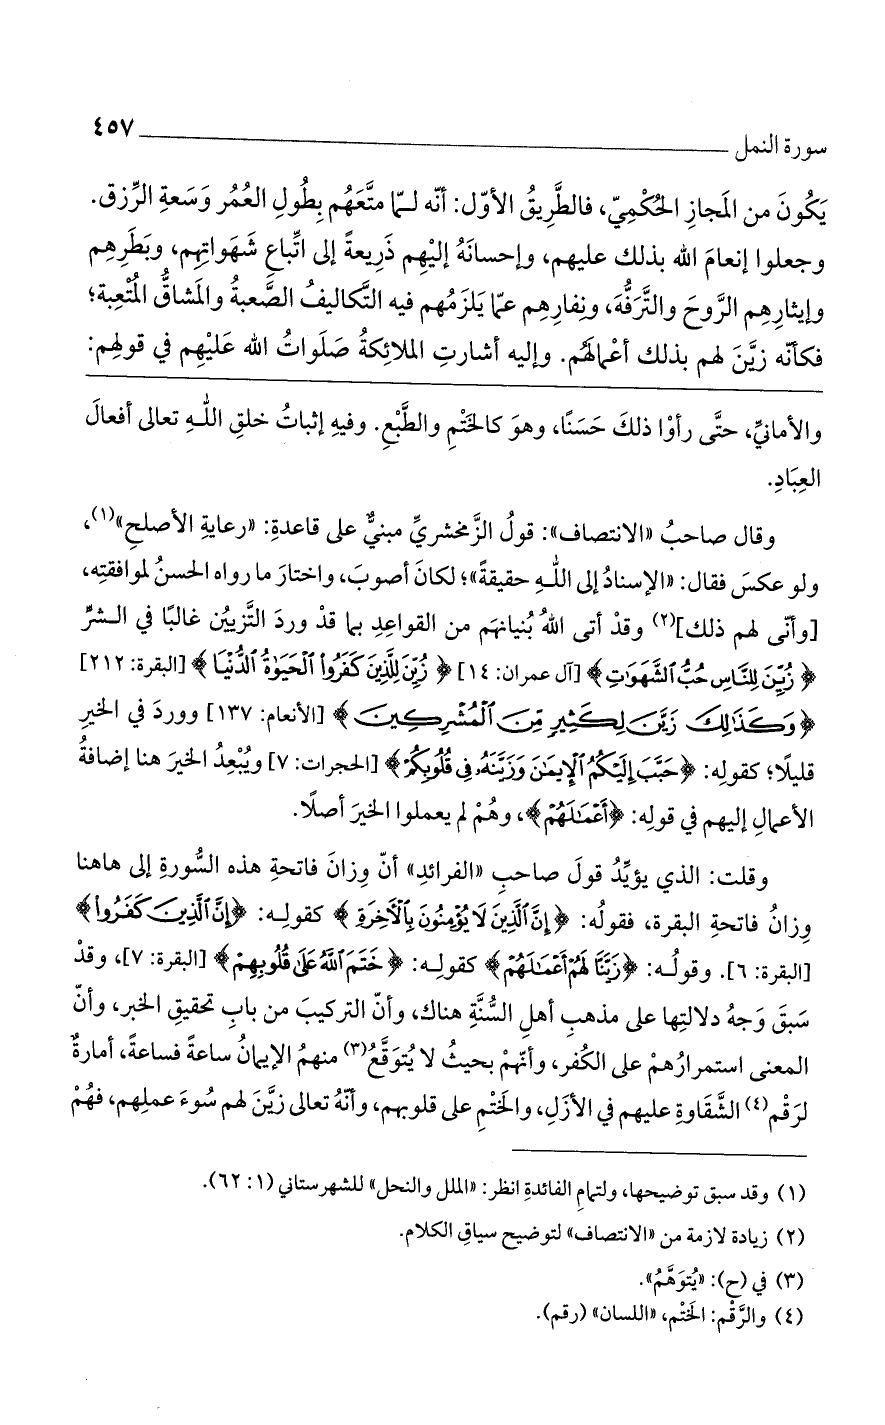 سورة النمل ٤٥٧
يَكُونَ من المَجازِ الحُكْميّ، فالطَّرِيقُ الأوّل: أنّه لـمّا متَّعَهُم بِطُولِ العُمُر وَسَعةِ الرِّزق.
وجعلوا إنعامَ الله بذلك عليهم، وإحسانَهُ إليْهِم ذَرِيعةً إلى اتِّباعِ شَهَواتِهِم، وبَطَرِهِم
وإيثارِهِم الرَّوحَ والتَّرَفُّهَ، ونِفارِهِم عمّا يَلزَمُهم فيه التَّكاليفُ الصَّعبةُ والمَشاقُّ المُتْعِبة؛
فكأنّه زيَّنَ لهم بذلك أعْمالَهُم. وإليه أشارتِ الملائِكةُ صَلَواتُ الله عَليْهِم في قولهِم:
والأمانيِّ، حتَّى رأوْا ذلكَ حَسَنًا، وهوَ كالخَتْمِ والطَّبْعِ. وفيهِ إثباتُ خلقِ اللـهِ تعالى أفعالَ
العِبَادِ.
وقال صاحبُ «الانتصاف»: قولُ الزَّمخشريِّ مبنيٌّ على قاعدةِ: «رعايةِ الأصلحِ»(١)،
ولو عكسَ فقال: «الإسنادُ إلى اللـهِ حقيقةً»؛ لكانَ أصوبَ، واختارَ ما رواه الحسنُ لموافقتِه،
[وأنّى لهم ذلك](٢) وقدْ أتى اللهُ بُنيانهَم من القواعدِ بما قدْ وردَ التَّزيينُ غالبًا في الـشرِّ
﴿ زُيِّنَ لِلنَّاسِ حُبُّ ٱلشَّهَوَٰتِ ﴾ [آل عمران: ١٤] ﴿ زُيِّنَ لِلَّذِينَ كَفَرُوا۟ ٱلْحَيَوٰةُ ٱلدُّنْيَا ﴾ [البقرة: ٢١٢]
﴿ وَكَذَٰلِكَ زَيَّنَ لِكَثِيرٍ مِّنَ ٱلْمُشْرِكِينَ ﴾ [الأنعام: ١٣٧] ووردَ في الخيرِ
قليلًا؛ كقولِه: ﴿حَبَّبَ إِلَيْكُمُ ٱلْإِيمَٰنَ وَزَيَّنَهُۥ فِى قُلُوبِكُمْ﴾ [الحجرات: ٧] ويُبْعِدُ الخيرَ هنا إضافةُ
الأعمالِ إليهم في قولِه: ﴿أَعْمَٰلَهُمْ﴾، وهُمْ لم يعملوا الخيرَ أصلًا.
وقلت: الذي يؤيِّدُ قولَ صاحبِ «الفرائدِ» أنّ وِزانَ فاتحةِ هذه السُّورةِ إلى هاهنا
وِزانُ فاتحةِ البقرة، فقولُه: ﴿إِنَّ ٱلَّذِينَ لَا يُؤْمِنُونَ بِٱلْأَخِرَةِ ﴾ كقولِـه: ﴿إِنَّ ٱلَّذِينَ كَفَرُوا۟﴾
[البقرة: ٦]. وقولُـه: ﴿زَيَّنَّا لَهُمْ أَعْمَٰلَهُمْ﴾ كقولِـه: ﴿ خَتَمَ ٱللَّهُ عَلَىٰ قُلُوبِهِمْ﴾ [البقرة: ٧]، وقدْ
سَبقَ وَجهُ دلالتِها على مذهبِ أهلِ السُّنَّةِ هناك، وأنّ التركيبَ من بابِ تحقيقِ الخبر، وأنّ
المعنى استمرارُهمْ على الكُفر، وأنّهمْ بحيثُ لا يُتوَقَّعُ(٣) منهمُ الإيمانُ ساعةً فساعةً، أمارةٌ
لرَقْمِ(٤) الشَّقَاوةِ عليهم في الأزَلِ، والخَتْمِ على قلوبهم، وأنَّهُ تعالى زيَّنَ لهم سُوءَ عملِهم، فهُمْ
(١) وقد سبق توضيحها، ولتمامِ الفائدةِ انظر: «الملل والنحل» للشهرستاني (١: ٦٢).
(٢) زيادة لازمة من «الانتصاف» لتوضيح سياقِ الكلام.
(٣) في (ح): «يُتوَهَّمُ».
(٤) والرَّقْم: الخَتْم، «اللسان» (رقم).